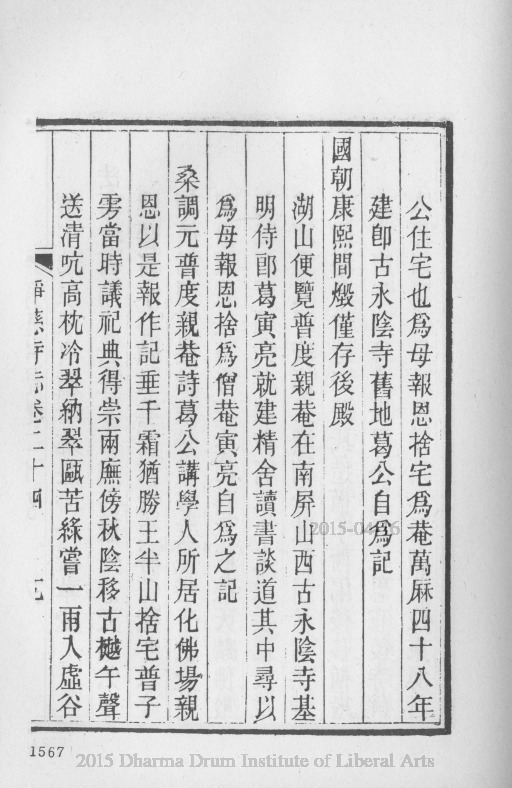 公住宅也爲母報恩捨宅爲菴萬厤四十八年
建卽古永陰寺舊地葛公自爲記
國朝康熙間燬僅存後殿
湖山便覽普度親菴在南屏山西古永陰寺基
明侍郎葛寅亮就建精舍讀書談道其中尋以
爲母報恩捨爲僧菴寅亮自爲之記
桑調元普度親菴詩葛公講學人所居化佛場親
恩以是報作記垂千霜猶勝王半山捨宅普子
雱當時議祀典得崇兩廡傍秋陰移古樾午聲
送清吭高枕冷翠納翠甌苦綠嘗一雨入虛谷
淨慈寺志卷二十四
2015-04-16
1567
2015 Dharma Drum Institute of Liberal Arts